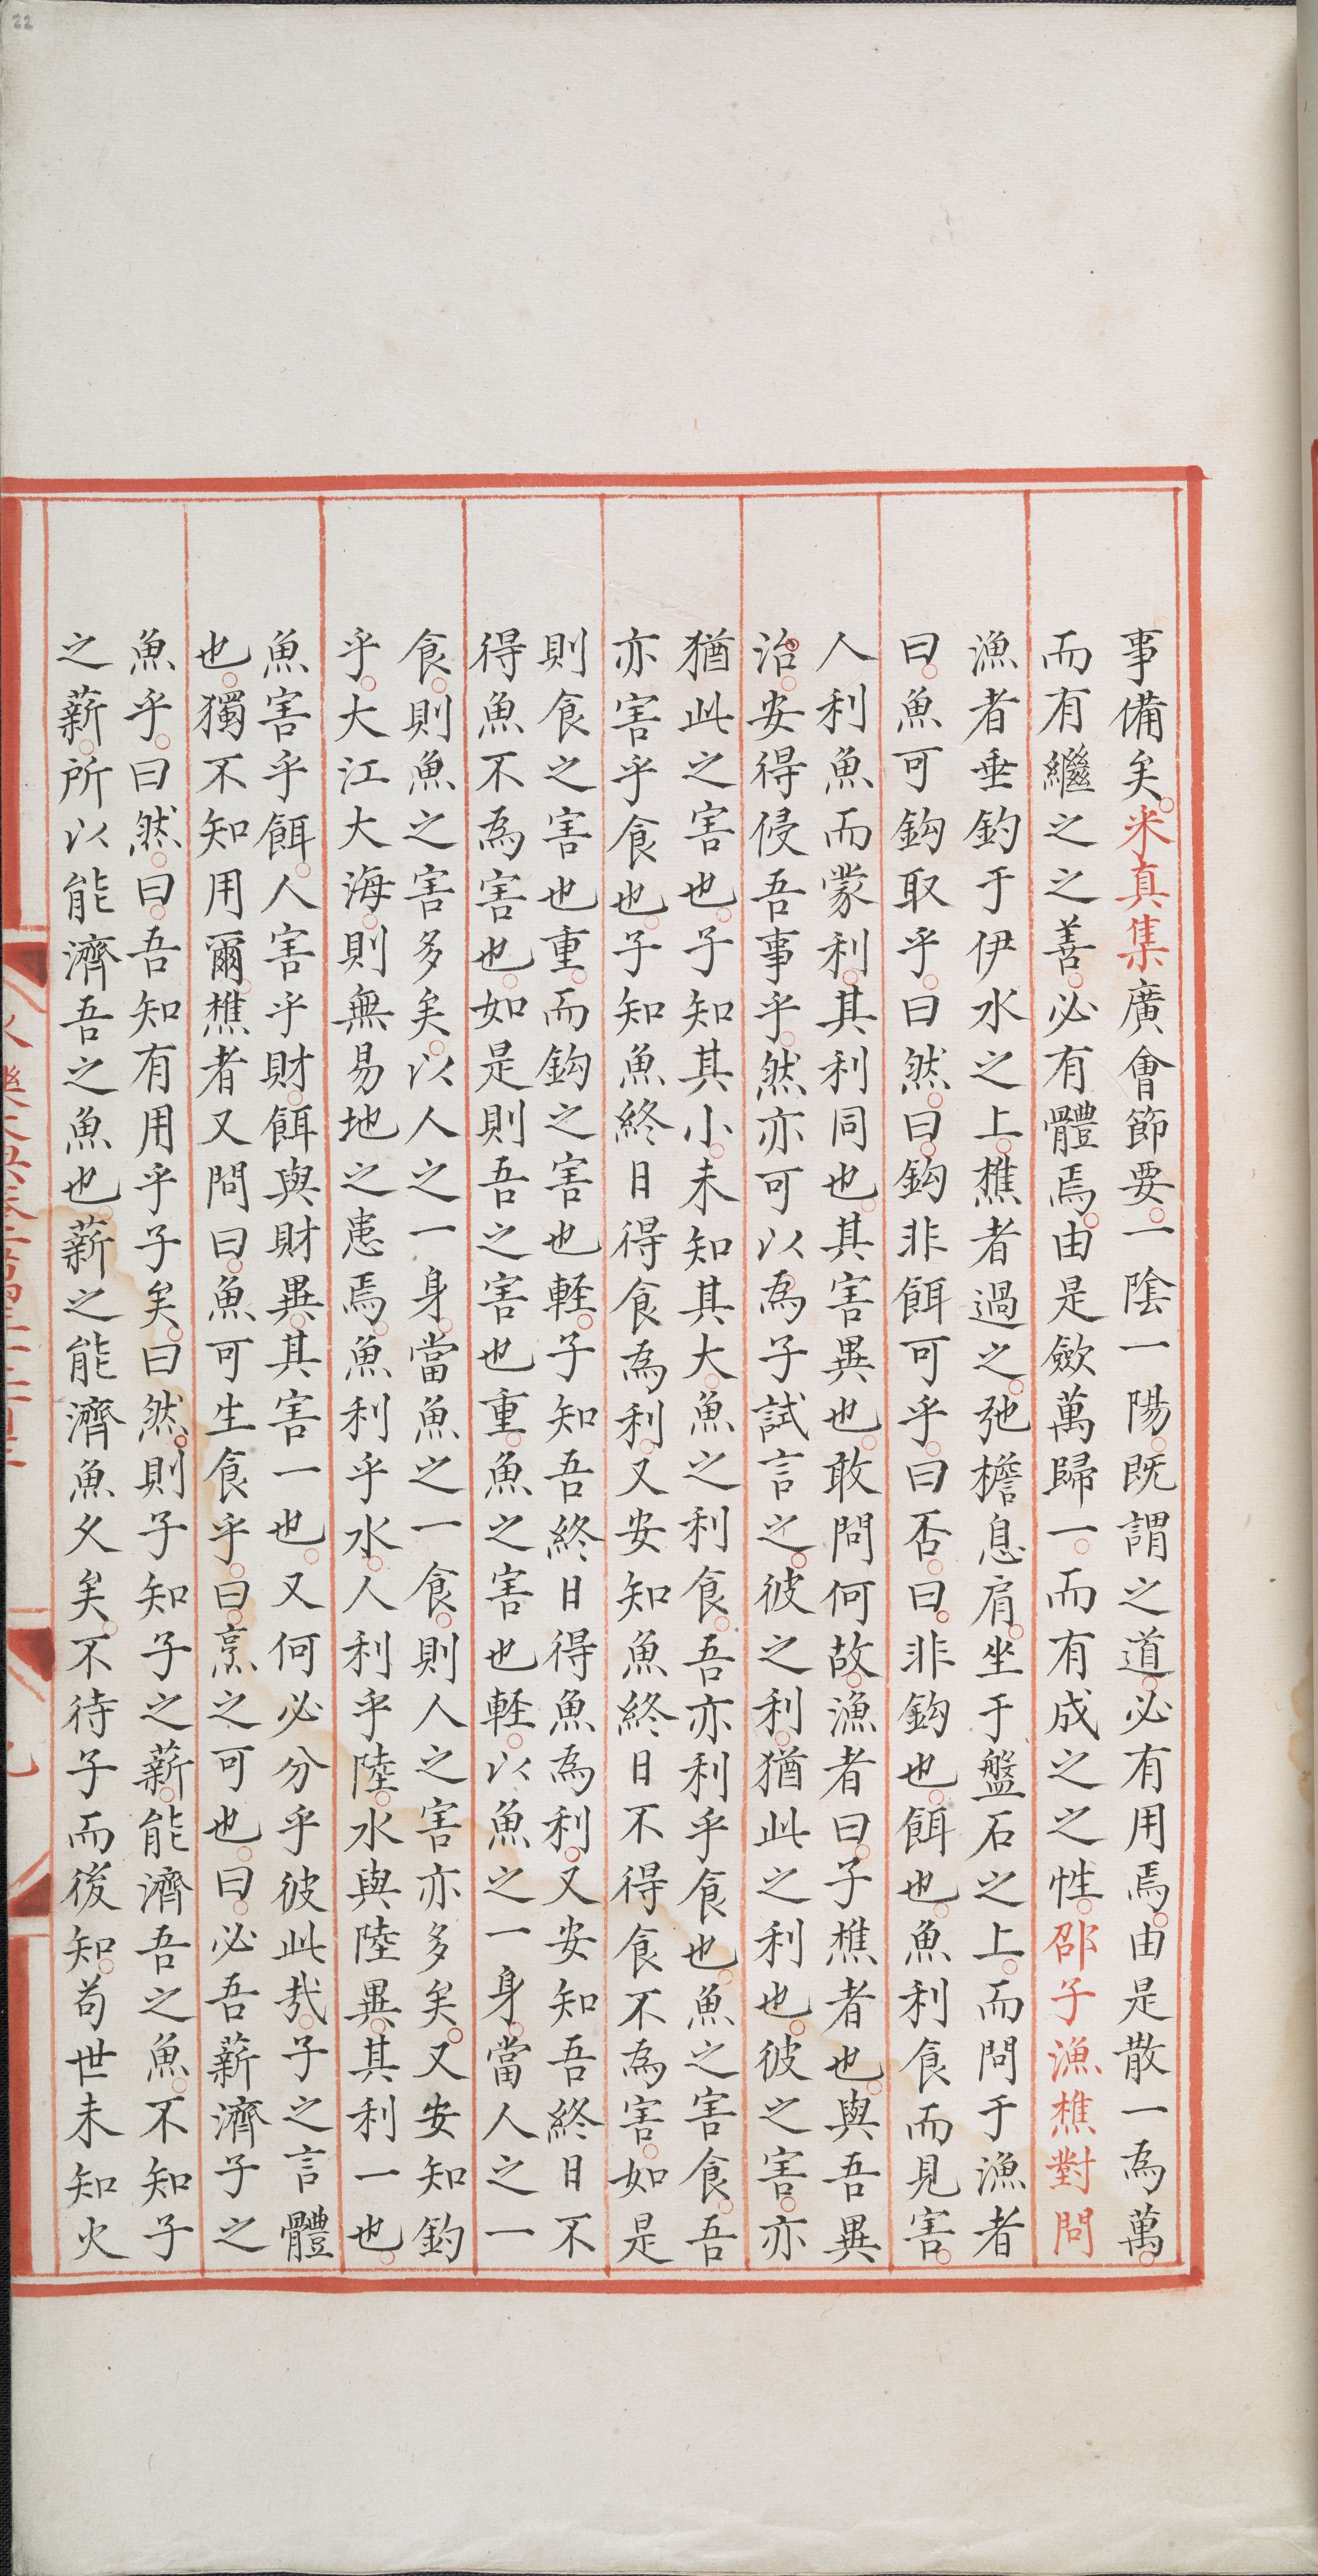 22
事備矣。米真集廣會節要。一陰一陽。既謂之道。必有用焉。由是散一為萬。
而有繼之之善。必有體焉。由是斂萬歸一。而有成之之性。邵子漁樵對問
漁者垂釣于伊水之上。樵者過之。弛檐息肩。坐于盤石之上。而問于漁者
曰。魚可鈎取乎。曰然。曰。鈎非餌可乎。曰否。曰。非鈎也。餌也。魚利食而見害。
人利魚而蒙利。其利同也。其害異也。敢問何故。漁者曰。子樵者也。與吾異
治。安得侵吾事乎。然亦可以為子試言之。彼之利。猶此之利也。彼之害。亦
猶此之害也。子知其小。未知其大。魚之利食。吾亦利乎食也。魚之害食。吾
亦害乎食也。子知魚終日得食為利。又安知魚終日不得食不為害。如是
則食之害也重。而鈎之害也軽。子知吾終日得魚為利。又安知吾終日不
得魚不為害也。如是則吾之害也重。魚之害也軽。以魚之一身。當人之一
食。則魚之害多矣。以人之一身。當魚之一食。則人之害亦多矣。又安知釣
乎。大江大海。則無易地之患焉。魚利乎水。人利乎陸。水與陸異。其利一也。
魚害乎餌。人害乎財。餌與財異。其害一也。又何必分乎彼此哉。子之言體
也。獨不知用爾。樵者又問曰。魚可生食乎。曰。烹之可也。曰。必吾薪濟子之
魚乎。曰然。曰。吾知有用乎子矣。曰然。則子知子之薪。能濟吾之魚。不知子
之薪。所以能濟吾之魚也。薪之能濟魚久矣。不待子而後知。苟世未知火